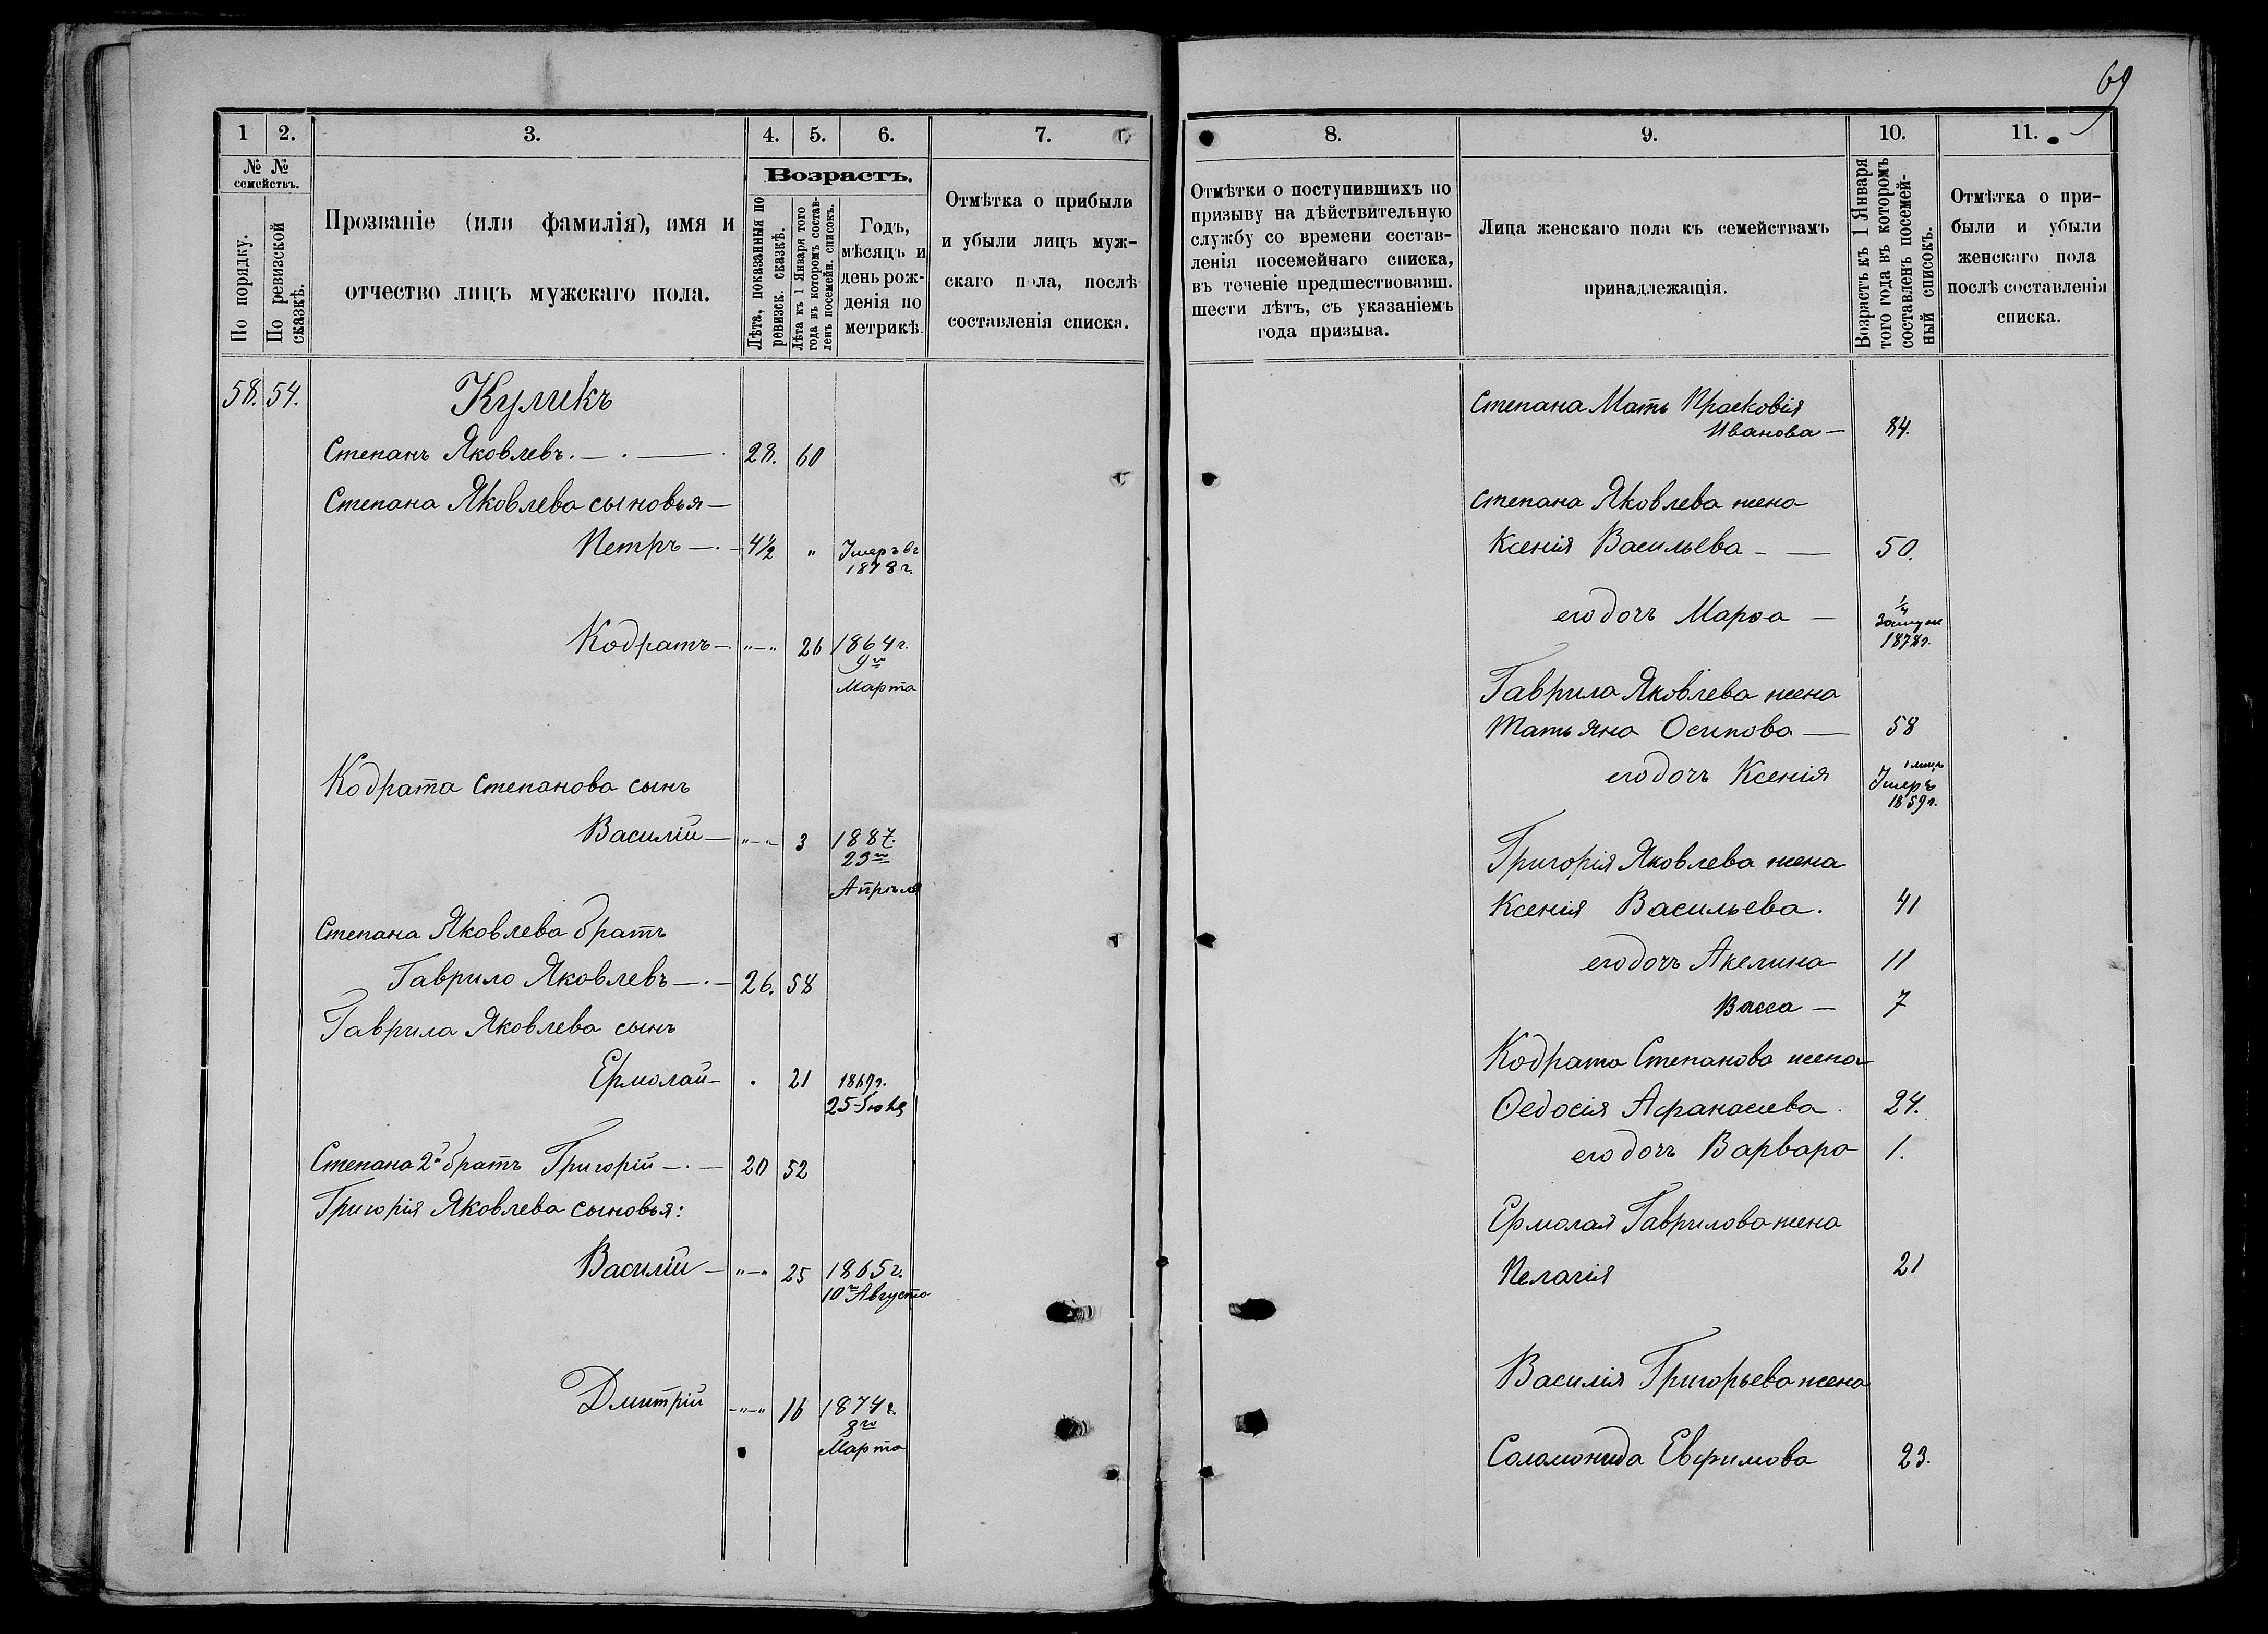 69
1
2.
3.
4.
5.
6.
7.
№ №
семействъ.
По порядку.
По ревизской
сказкѣ.
Прозваніе (или фамилія), имя и
отчество лицъ мужскаго пола.
Возрастъ.
Лѣта, показанныя по
ревизск. сказкѣ.
Лѣта къ 1 Января того
года въ которомъ состав-
ленъ посемейн. списокъ.
Годъ,
мѣсяцъ и
день рож-
денія по
метрикѣ.
Отмѣтка о прибыли
и убыли лицъ муж-
скаго пола, послѣ
составленія списка.
58. 54. Куликъ
Степанъ Яковлевъ. — . — 28. 60
Степана Яковлева сыновья —
Петръ — . — 4½ " Умеръ въ
1878 г.
Кодратъ — "—" 26 1864 г.
9го
Марта
Кодрата Степанова сынъ
Василій — "—" 3 1887.
23го
Апрѣля
Степана Яковлева братъ
Гаврило Яковлевъ — . — 26. 58
Гаврила Яковлева сынъ
Ермолай — 21 1869 г.
25
Степана 2й братъ Григорій — . — 20 52
Григорія Яковлева сыновья:
Василій — "—" 25 1865 г.
10го Августа
Дмитрій —"—" 16 1874 г.
8го
Марта
8.
9.
10.
11.
Отмѣтки о поступившихъ по
призыву на дѣйствительную
службу со времени состав-
ленія посемейнаго списка,
въ теченіе предшествовавш.
шести лѣтъ, съ указаніемъ
года призыва.
Лица женскаго пола къ семействамъ
принадлежащія.
Возрастъ къ 1 Января
того года въ которомъ
составленъ посемей-
ный списокъ.
Отмѣтка о при-
были и убыли
женскаго пола
послѣ составленія
списка.
Степана Мать Прасковія
Иванова — 84.
Степана Яковлева жена
Ксенія Васильева - — 50.
его дочь Марѳа — ¼
Замужн
1878 г.
Гаврила Яковлева жена
Татьяна Осипова — 58
его дочь Ксенія 1 мѣц.
Умеръ
1859 г.
Григорія Яковлева жена
Ксенія Васильева. 41
его дочь Акелина 11
Васса — 7
Кодрата Степанова жена
Ѳедосія Афанасиева 24.
его дочь Варвара 1.
Ермолая Гаврилова жена
Пелагія 21
Василія Григорьева жена
Соломонида Евфимова 23.